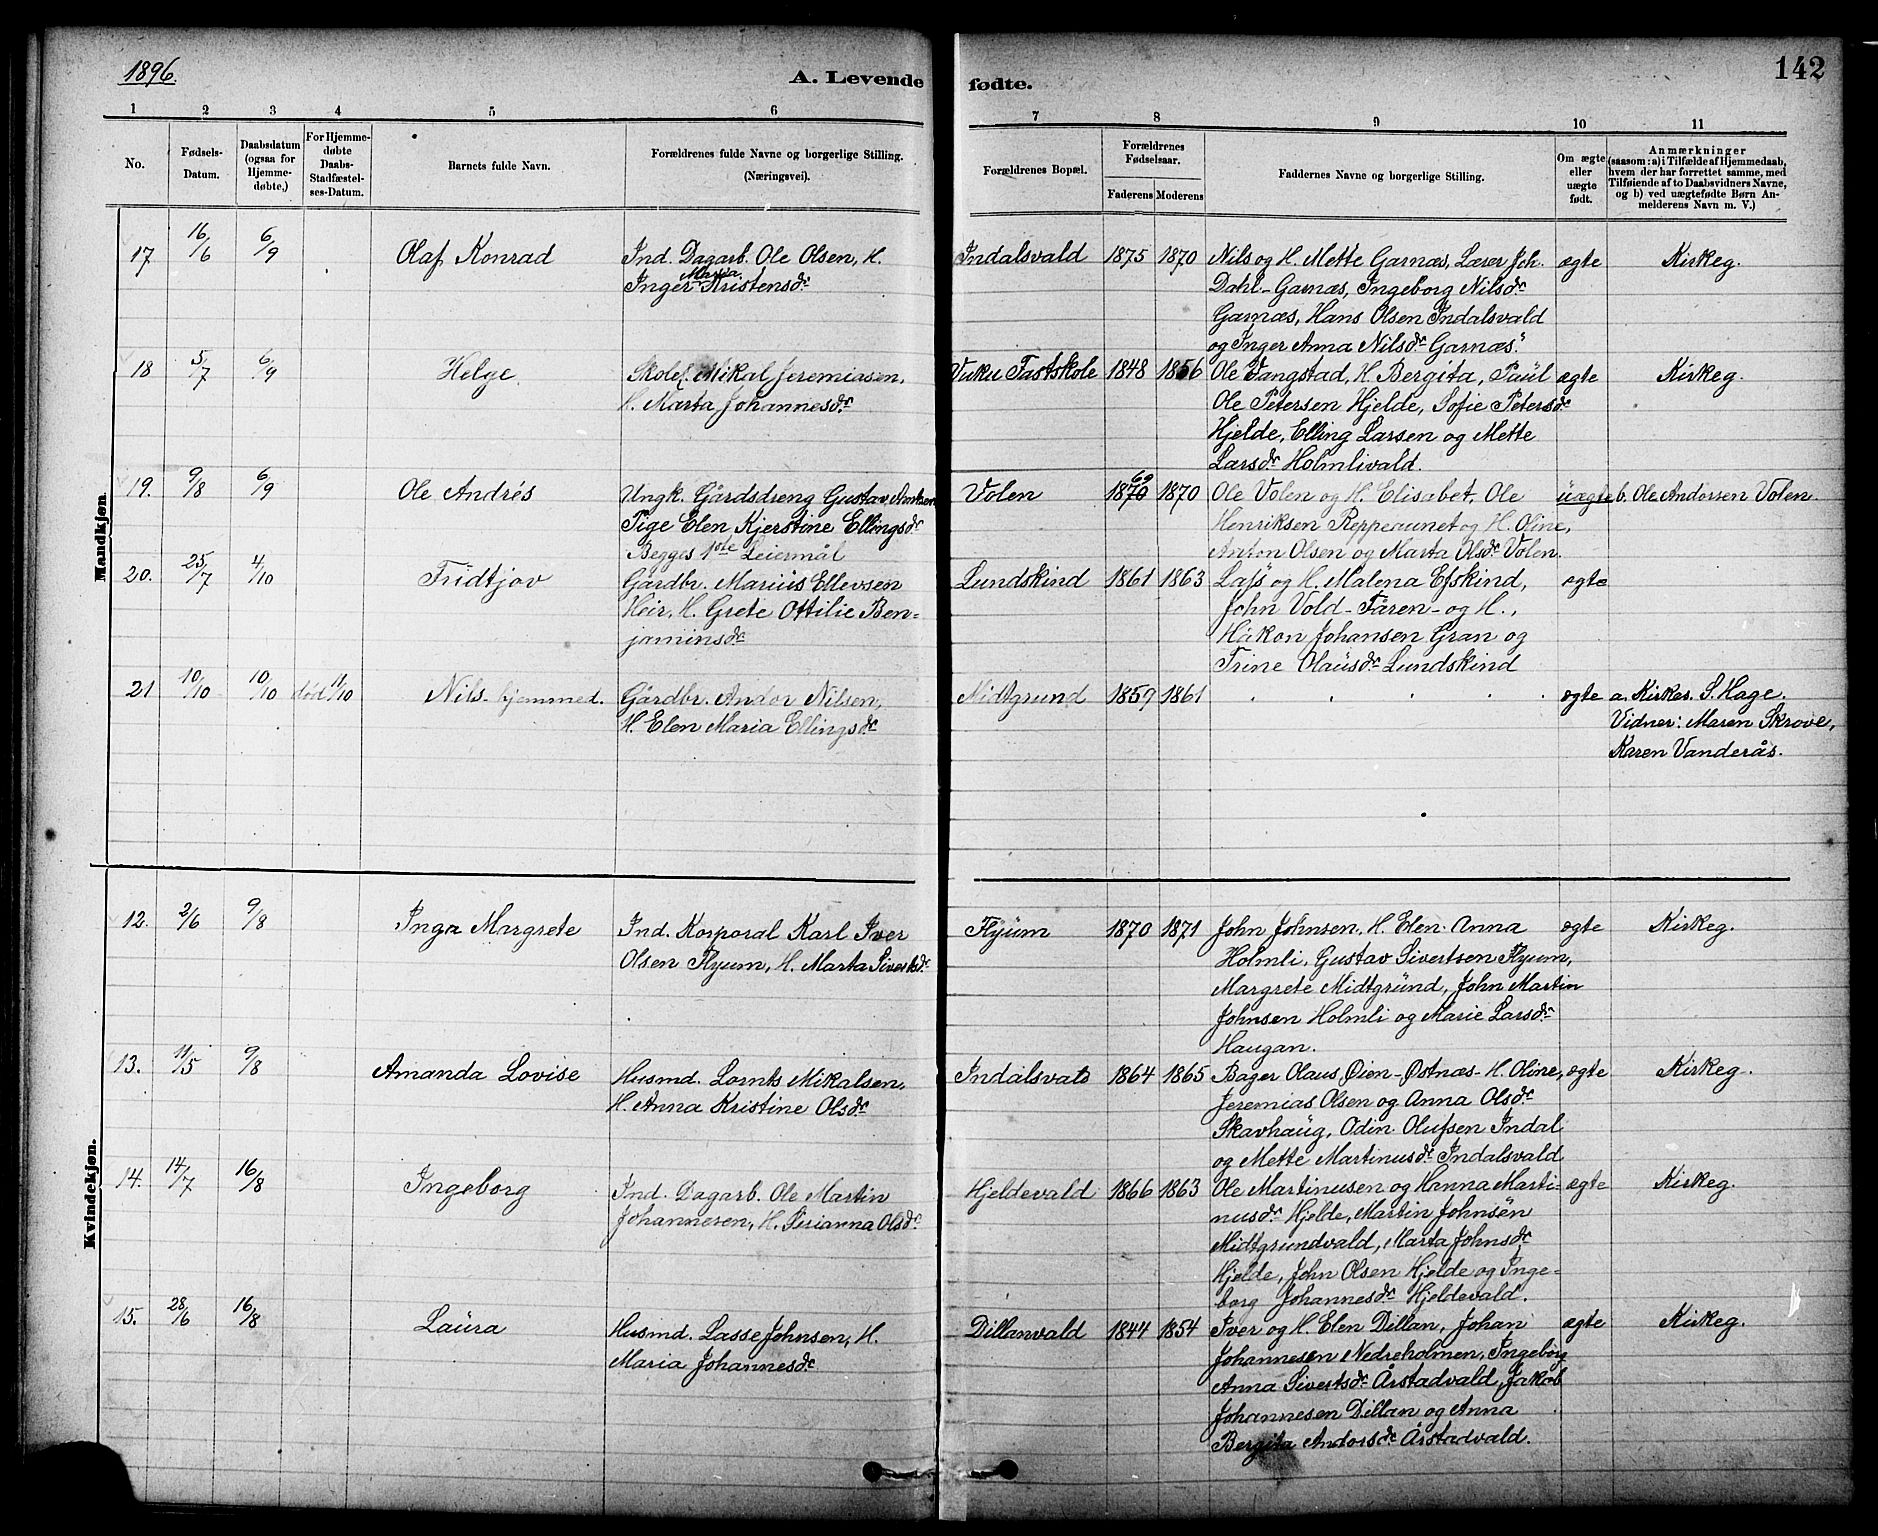 1896.
A. Levende fødte.
142
1 2 3 4 5 6 7 8 9 10 11
No.
Fødsels-
Datum.
Daabsdatum
(ogsaa for
Hjemme-
døbte,)
For Hjemme-
døbte
Daabs-
Stadfæstel-
ses-Datum.
Barnets fulde Navn.
Forældrenes fulde Navne og borgerlige Stilling.
(Næringsvei).
Forældrenes Bopæl.
Forældrenes
Fødselsaar.
Faderens Moderens
Faddernes Navne og borgerlige Stilling.
Om ægte
eller
uægte
født.
Anmærkninger
(saasom: a) i Tilfælde af Hjemmedaab,
hvem der har forrettet samme, med
Tilføiende af to Daabsvidners Navne,
og b) ved uægtefødte Børn An-
melderens Navn m. V.)
Mandkjøn.
17 16/6 6/9 Olaf Konrad
Ind. Dagarb. Ole Olsen, H.
Maria
Inger Kristensdr
Indalsvald 1875 1870
Nils og H. Mette Garnæs, Lærer Joh.
Dahl-Garnæs, Ingeborg Nilsdr
Garnæs, Hans Olsen Indalsvald
og Inger Anna Nilsdr Garnæs.
ægte Kirkeg.
18 5/7 6/9 Helge.
Skolel. Mikal Jeremiasen,
H. Marta Johannesdr
Vuku Fastskole 1848 1856
Ole Vangstad, H. Bergita, Paul
Ole Petersen Hjelde, Sofie Petersdr
Hjelde, Elling Larsen og Mette
Larsdr Holmlivald.
ægte Kirkeg.
19. 9/8 6/9 Ole Andrés
Ungk. Gårdsdreng Gustav
Pige Elen Kjerstine Ellingsdr
Begges 1ste Leiermål
Volen 1870 69 1870
Ole Volen og H. Elisabet, Ole
Henriksen Reppeaunet og H. Oline,
Anton Olsen og Marta Olsdr Volen.
uægte b. Ole Andorsen Volen.
20. 25/7 4/10 Fridtjov
Gårdbr. Marius Ellevsen
Heir, H. Grete Ottilie Ben-
jaminsdr
Lundskind 1861 1863
og H. Malena Efskind,
John Vold-Fåren- og H.,
Håkon Johansen Gran og
Trine Olausdr Lundskind
ægte
21 10/10 10/10 død 11/10 Nils. hjemmed.
Gårdbr. Andor Nilsen,
H. Elen Maria Ellingsdr
Midtgrund 1859 1861
ægte a. Kirkes. S. Hage.
Vidner: Maren Skrove,
Karen Vanderås.
Kvindekjøn.
12. 2/6 9/8 Inga Margrete
Ind. Korporal Karl Iver
Olsen Flyum, H. Marta Sivertsdr
Flyum 1870 1871
John Johnsen, H. Elen Anna
Holmli, Gustav Sivertsen Flyum,
Margrete Midtgrund, John Martin
Johnsen Holmli og Marie Larsdr
Haugan.
ægte Kirkeg.
13. 11/5 9/8 Amanda Lovise
Husmd. Lornts Mikalsen,
H. Anna Kristine Olsdr
Indalsvald 1864 1865
Bager Olaus Øien-Østnæs-H. Oline,
Jeremias Olsen og Anna Olsdr
Skavhaug, Odin Olufsen Indal
og Mette Martinusdr Indalsvald
ægte Kirkeg.
14. 14/7 16/8 Ingeborg
Ind. Dagarb. Ole Martin
Johannesen, H. Olsdr
Hjeldevald 1866 1863
Ole Martinusen og Hanna Marti-
nusdr Hjelde, Martin Johnsen
Midtgrundvald, Marta Johnsdr
Hjelde, John Olsen Hjelde og Inge-
borg Johannesdr Hjeldevald.
ægte Kirkeg.
15. 28/6 16/8 Laura
Husmd. Lasse Johnsen, H.
Maria Johannesdr
Dillanvald 1844 1854
Iver og H. Elen Dillan, Johan
Johannesen Nedreholmen, Ingeborg
Anna Sivertsdr Årstadvald, Jakob
Johannesen Dillan og Anna
Bergita Andorsdr Årstadvald.
ægte Kirkeg.